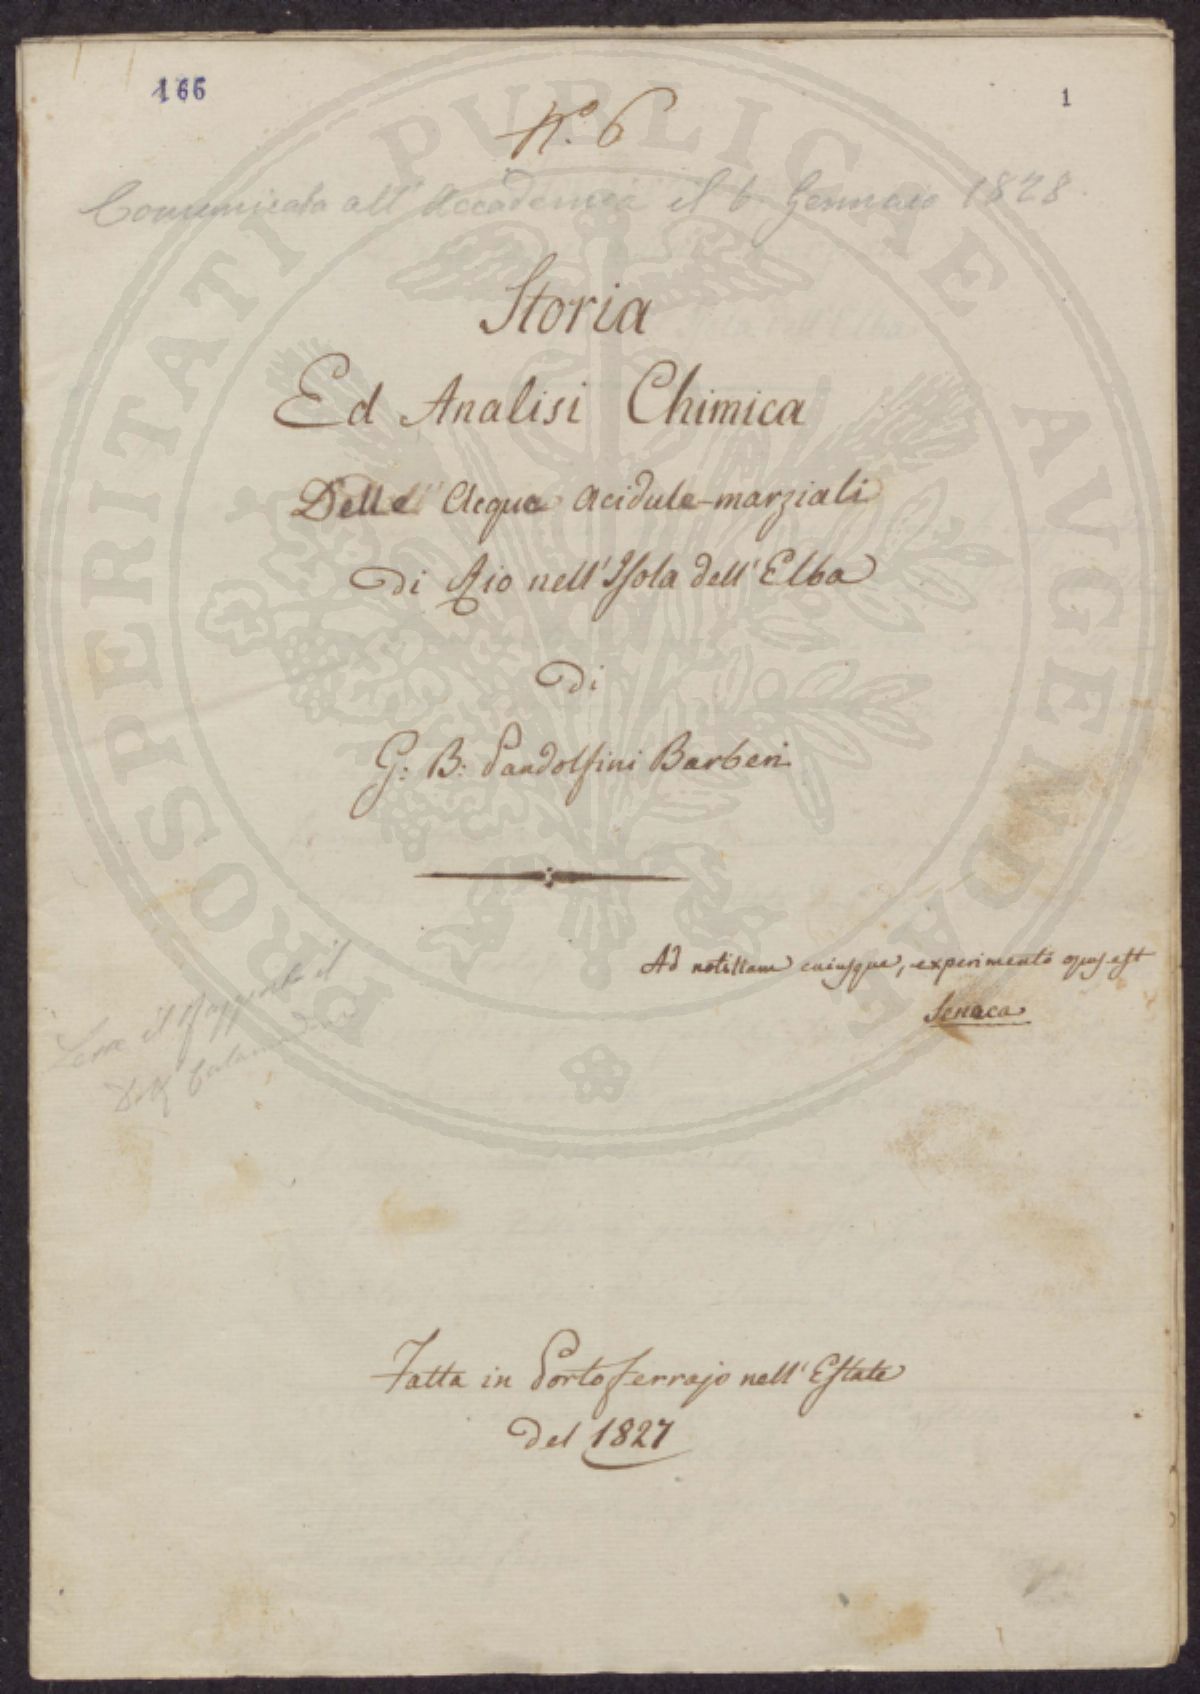 166
1
N.º 6
Comunicata all'Accademia il 6. Gennaio 1828.
Storia
Ed Analisi Chimica
Delle Acque Acidule-marziali
Di Rio nell'Isola dell'Elba
Di
G: B: Pandolfini Barberi
Ad notitiam cuiusque, experimento opus est
Seneca
il Rapporto il
Fatta in Portoferrajo nell'Estate
Del 1827
PROSPERITATI PUBLICAE AUGENDAE